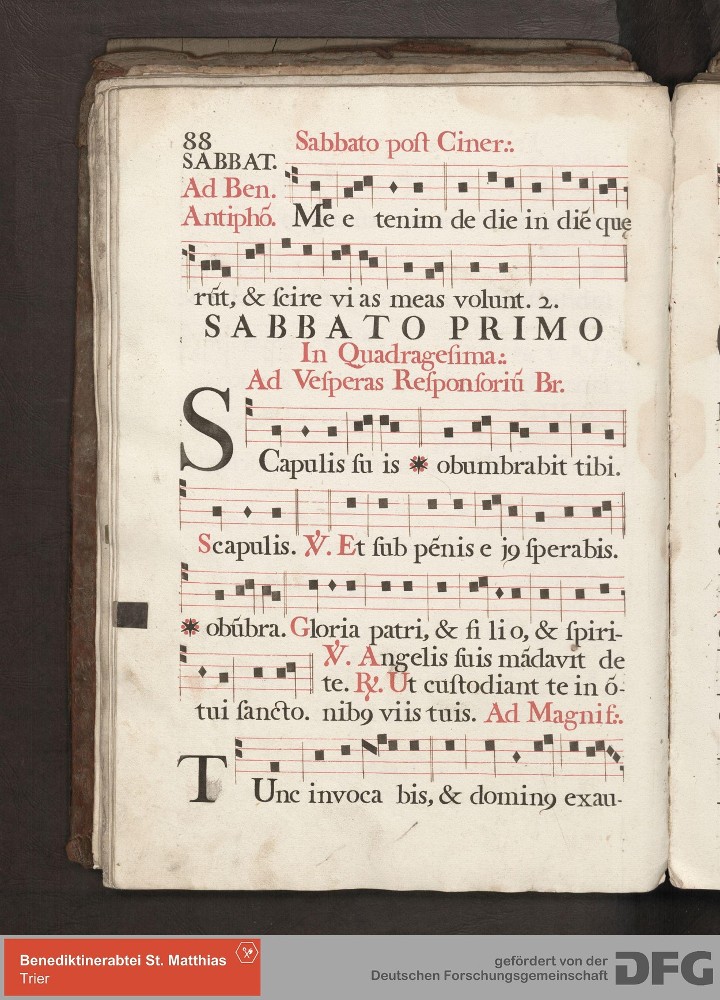 88 Sabbato poſt Ciner.:.
SABBAT.
Ad Ben.
Antiphō. Me e tenim de die in diē que
rūt, & ſcire vi as meas volunt. 2.
SABBATO PRIMO
In Quadrageſima.:
Ad Veſperas Reſponſoriū Br.
SCapulis ſu is * obumbrabit tibi.
Scapulis. ℣. Et ſub pēnis e j9 ſperabis.
* obūbra. Gloria patri, & fi li o, & ſpiri-
℣. Angelis ſuis mādavit de
te. ℟. Ut cuſtodiant te in ō-
tui ſancto. nib9 viis tuis. Ad Magnif.:.
TUnc invoca bis, & domin9 exau-
Benediktinerabtei St. Matthias
Trier
gefördert von der
Deutschen Forschungsgemeinschaft
DFG